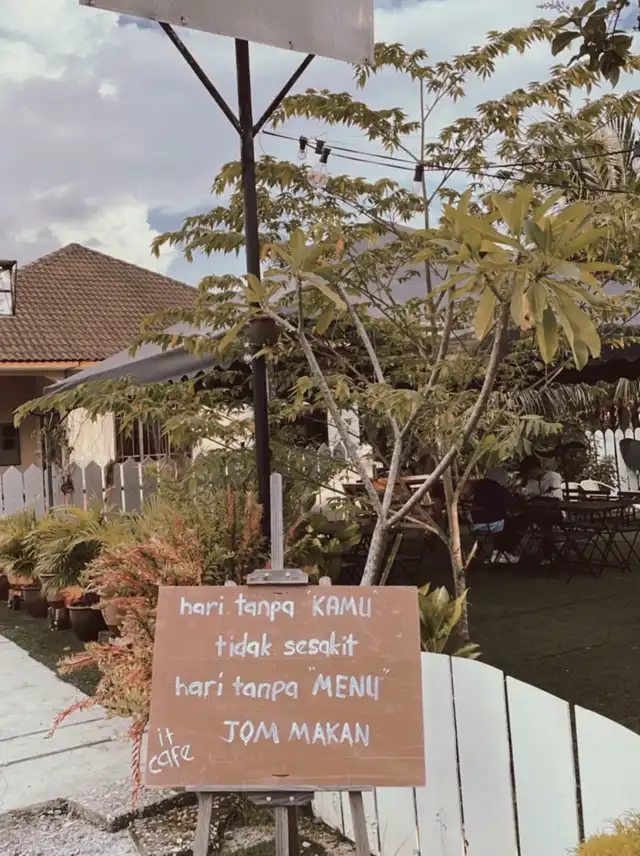 hari tanpa "KAMU
tidak sesakit
hari tanpa "MENU"
JOM MAKAN
it
cafe